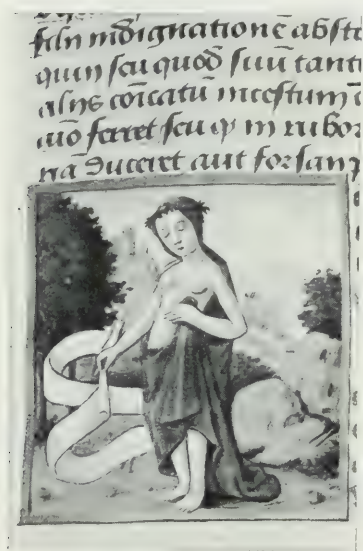 indignationē abste
quin seu quod suū tanti
alijs cōicatū incestum
uo ferret seu in rubor
nā duceret aut forsan